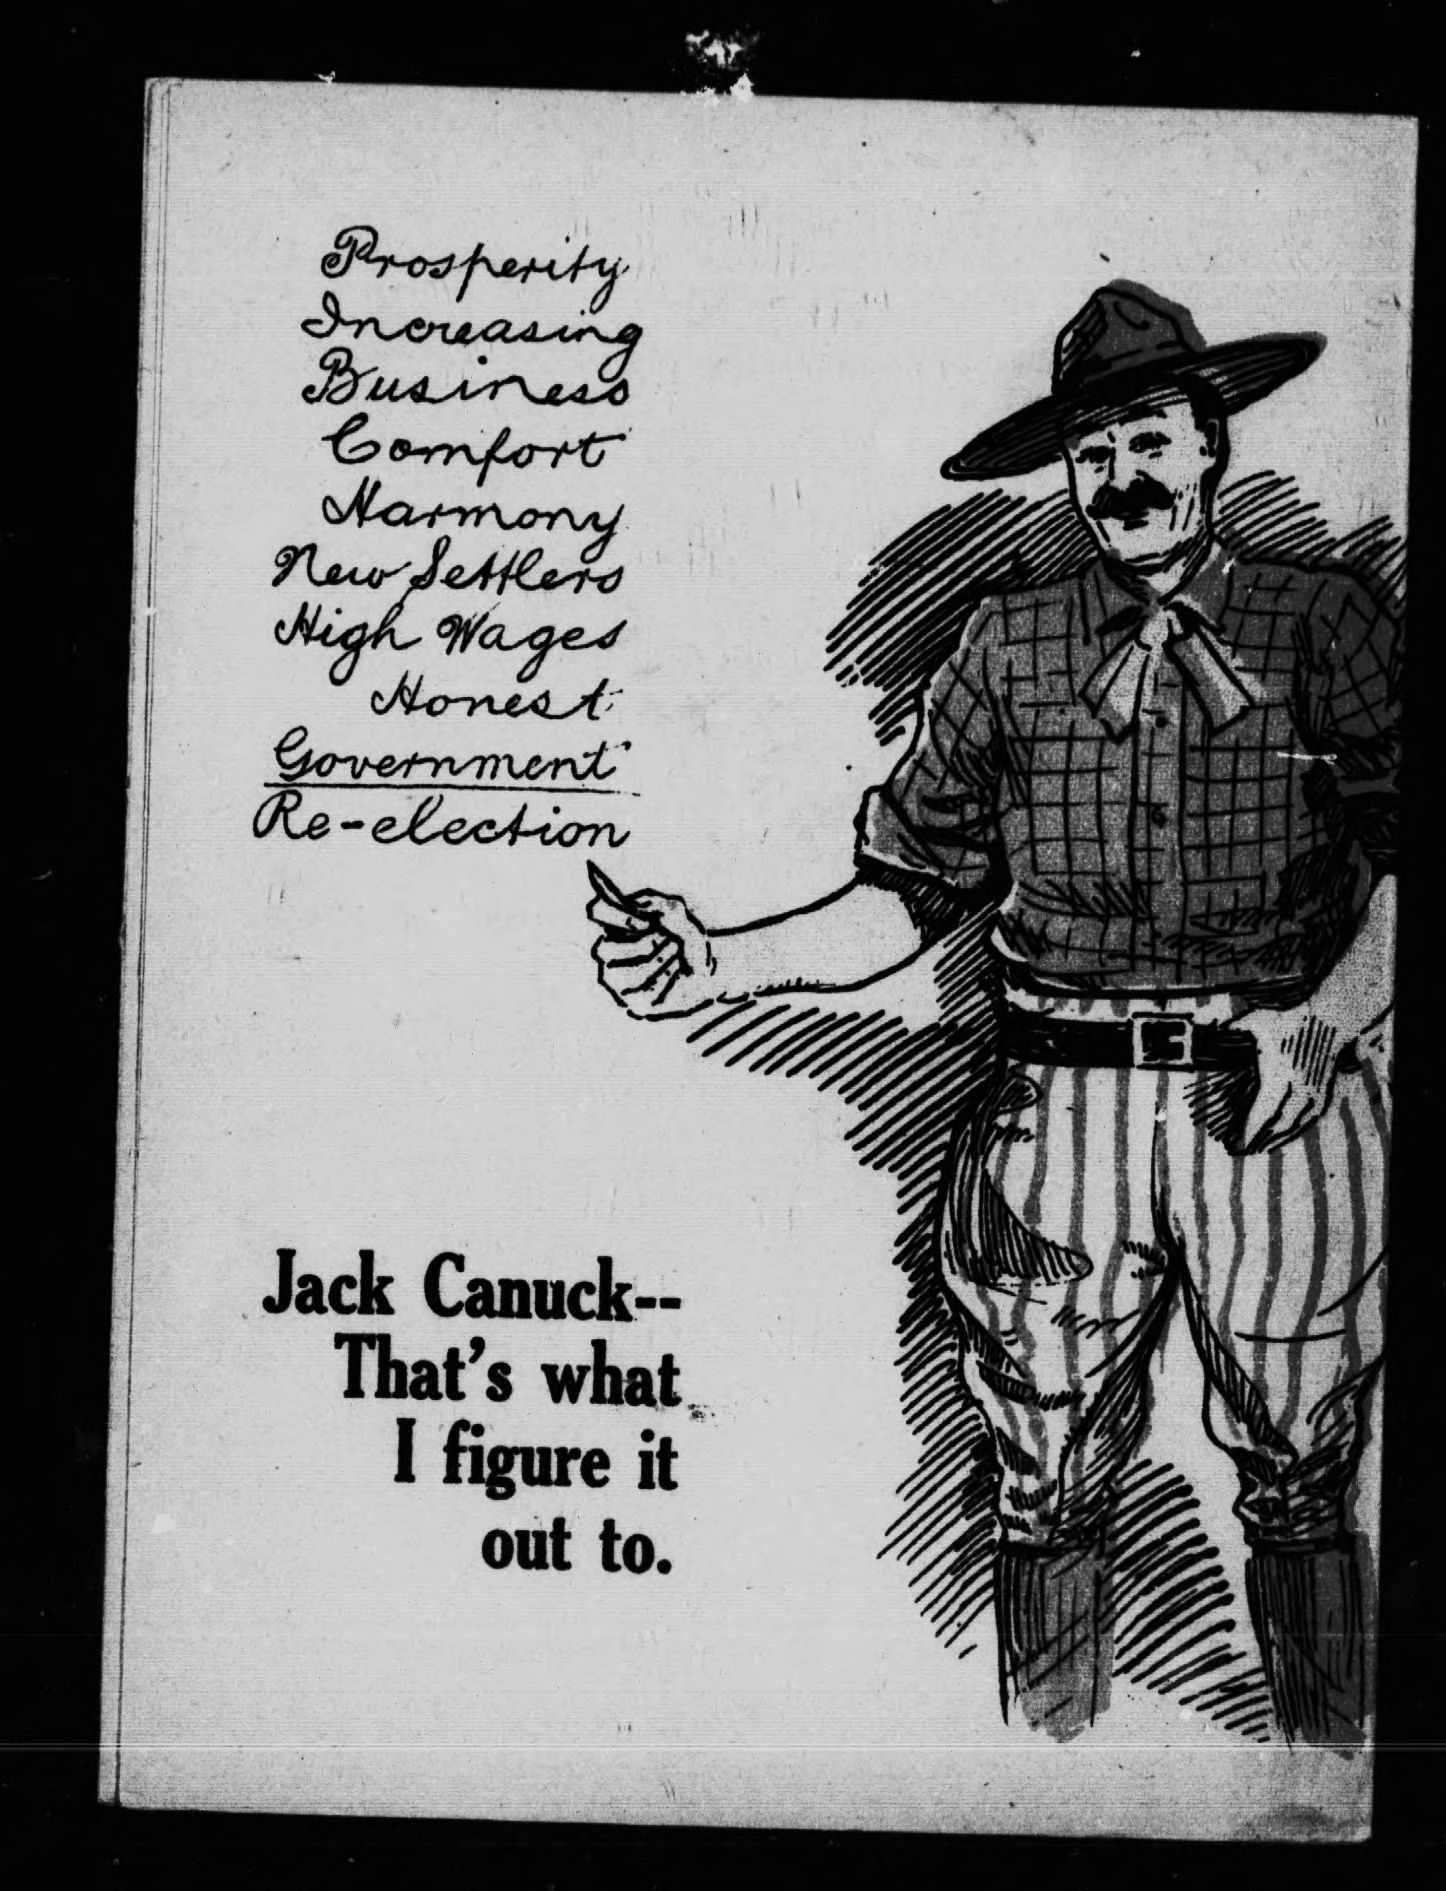 Prosperity
Increasing
Business
Comfort
Harmony
New Settlers
High Wages
Honest
Government
Re-election
Jack Canuck--
That's what
I figure it
out to.